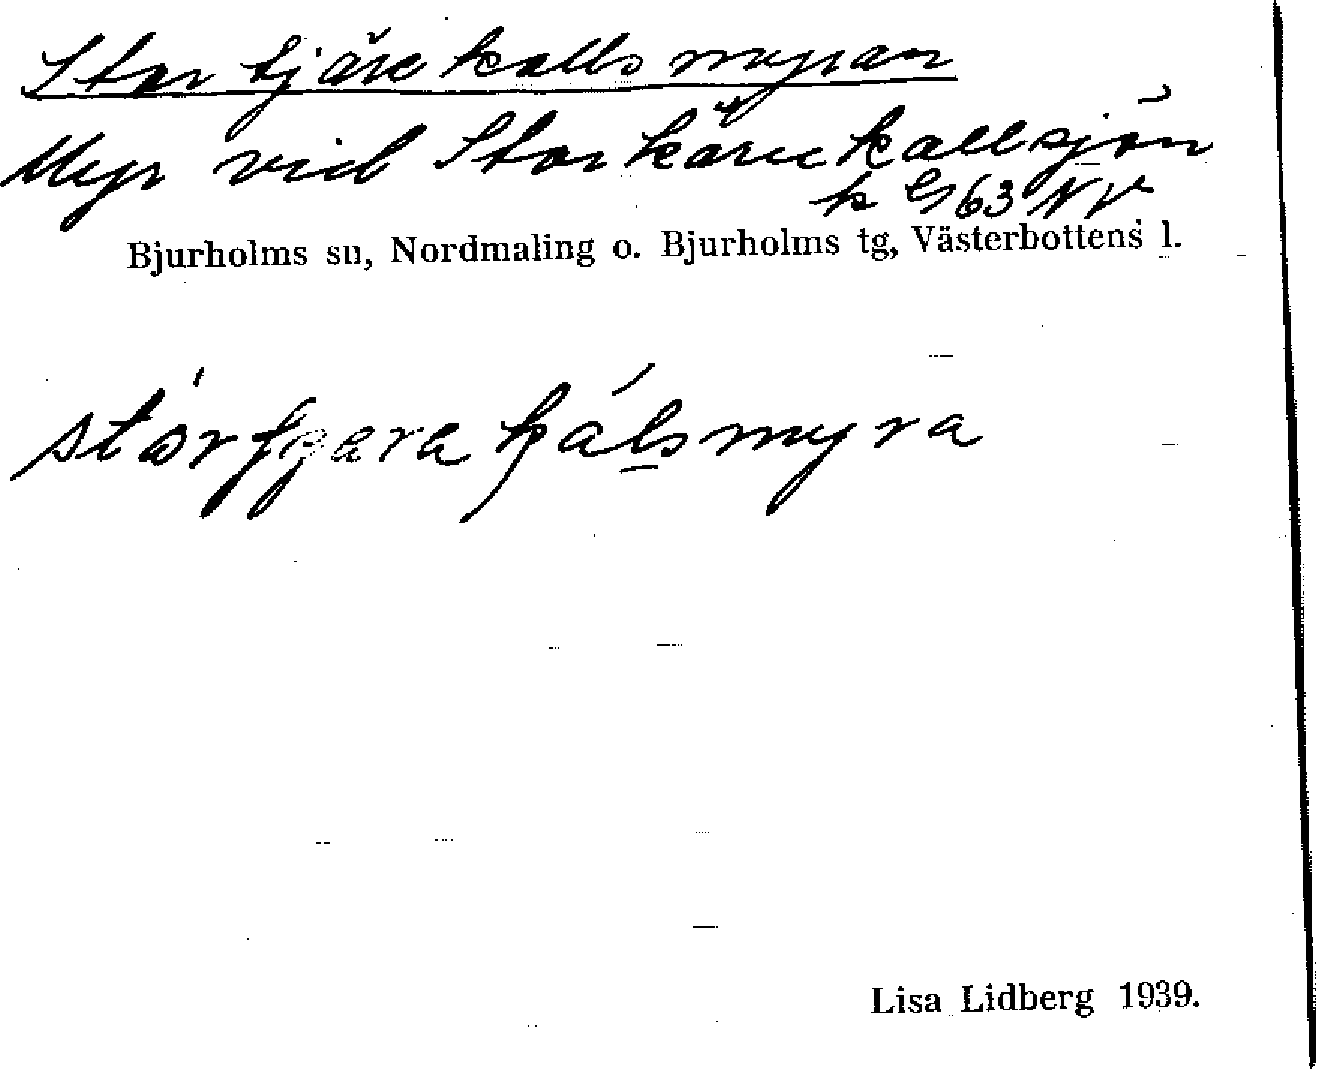 Stor tjärekallsmyran
Myr vid Storkärrekallsjön
k G 63 NV
Bjurholms sn, Nordmaling o. Bjurholms tg, Västerbottens l.
Lisa Lidberg 1939.